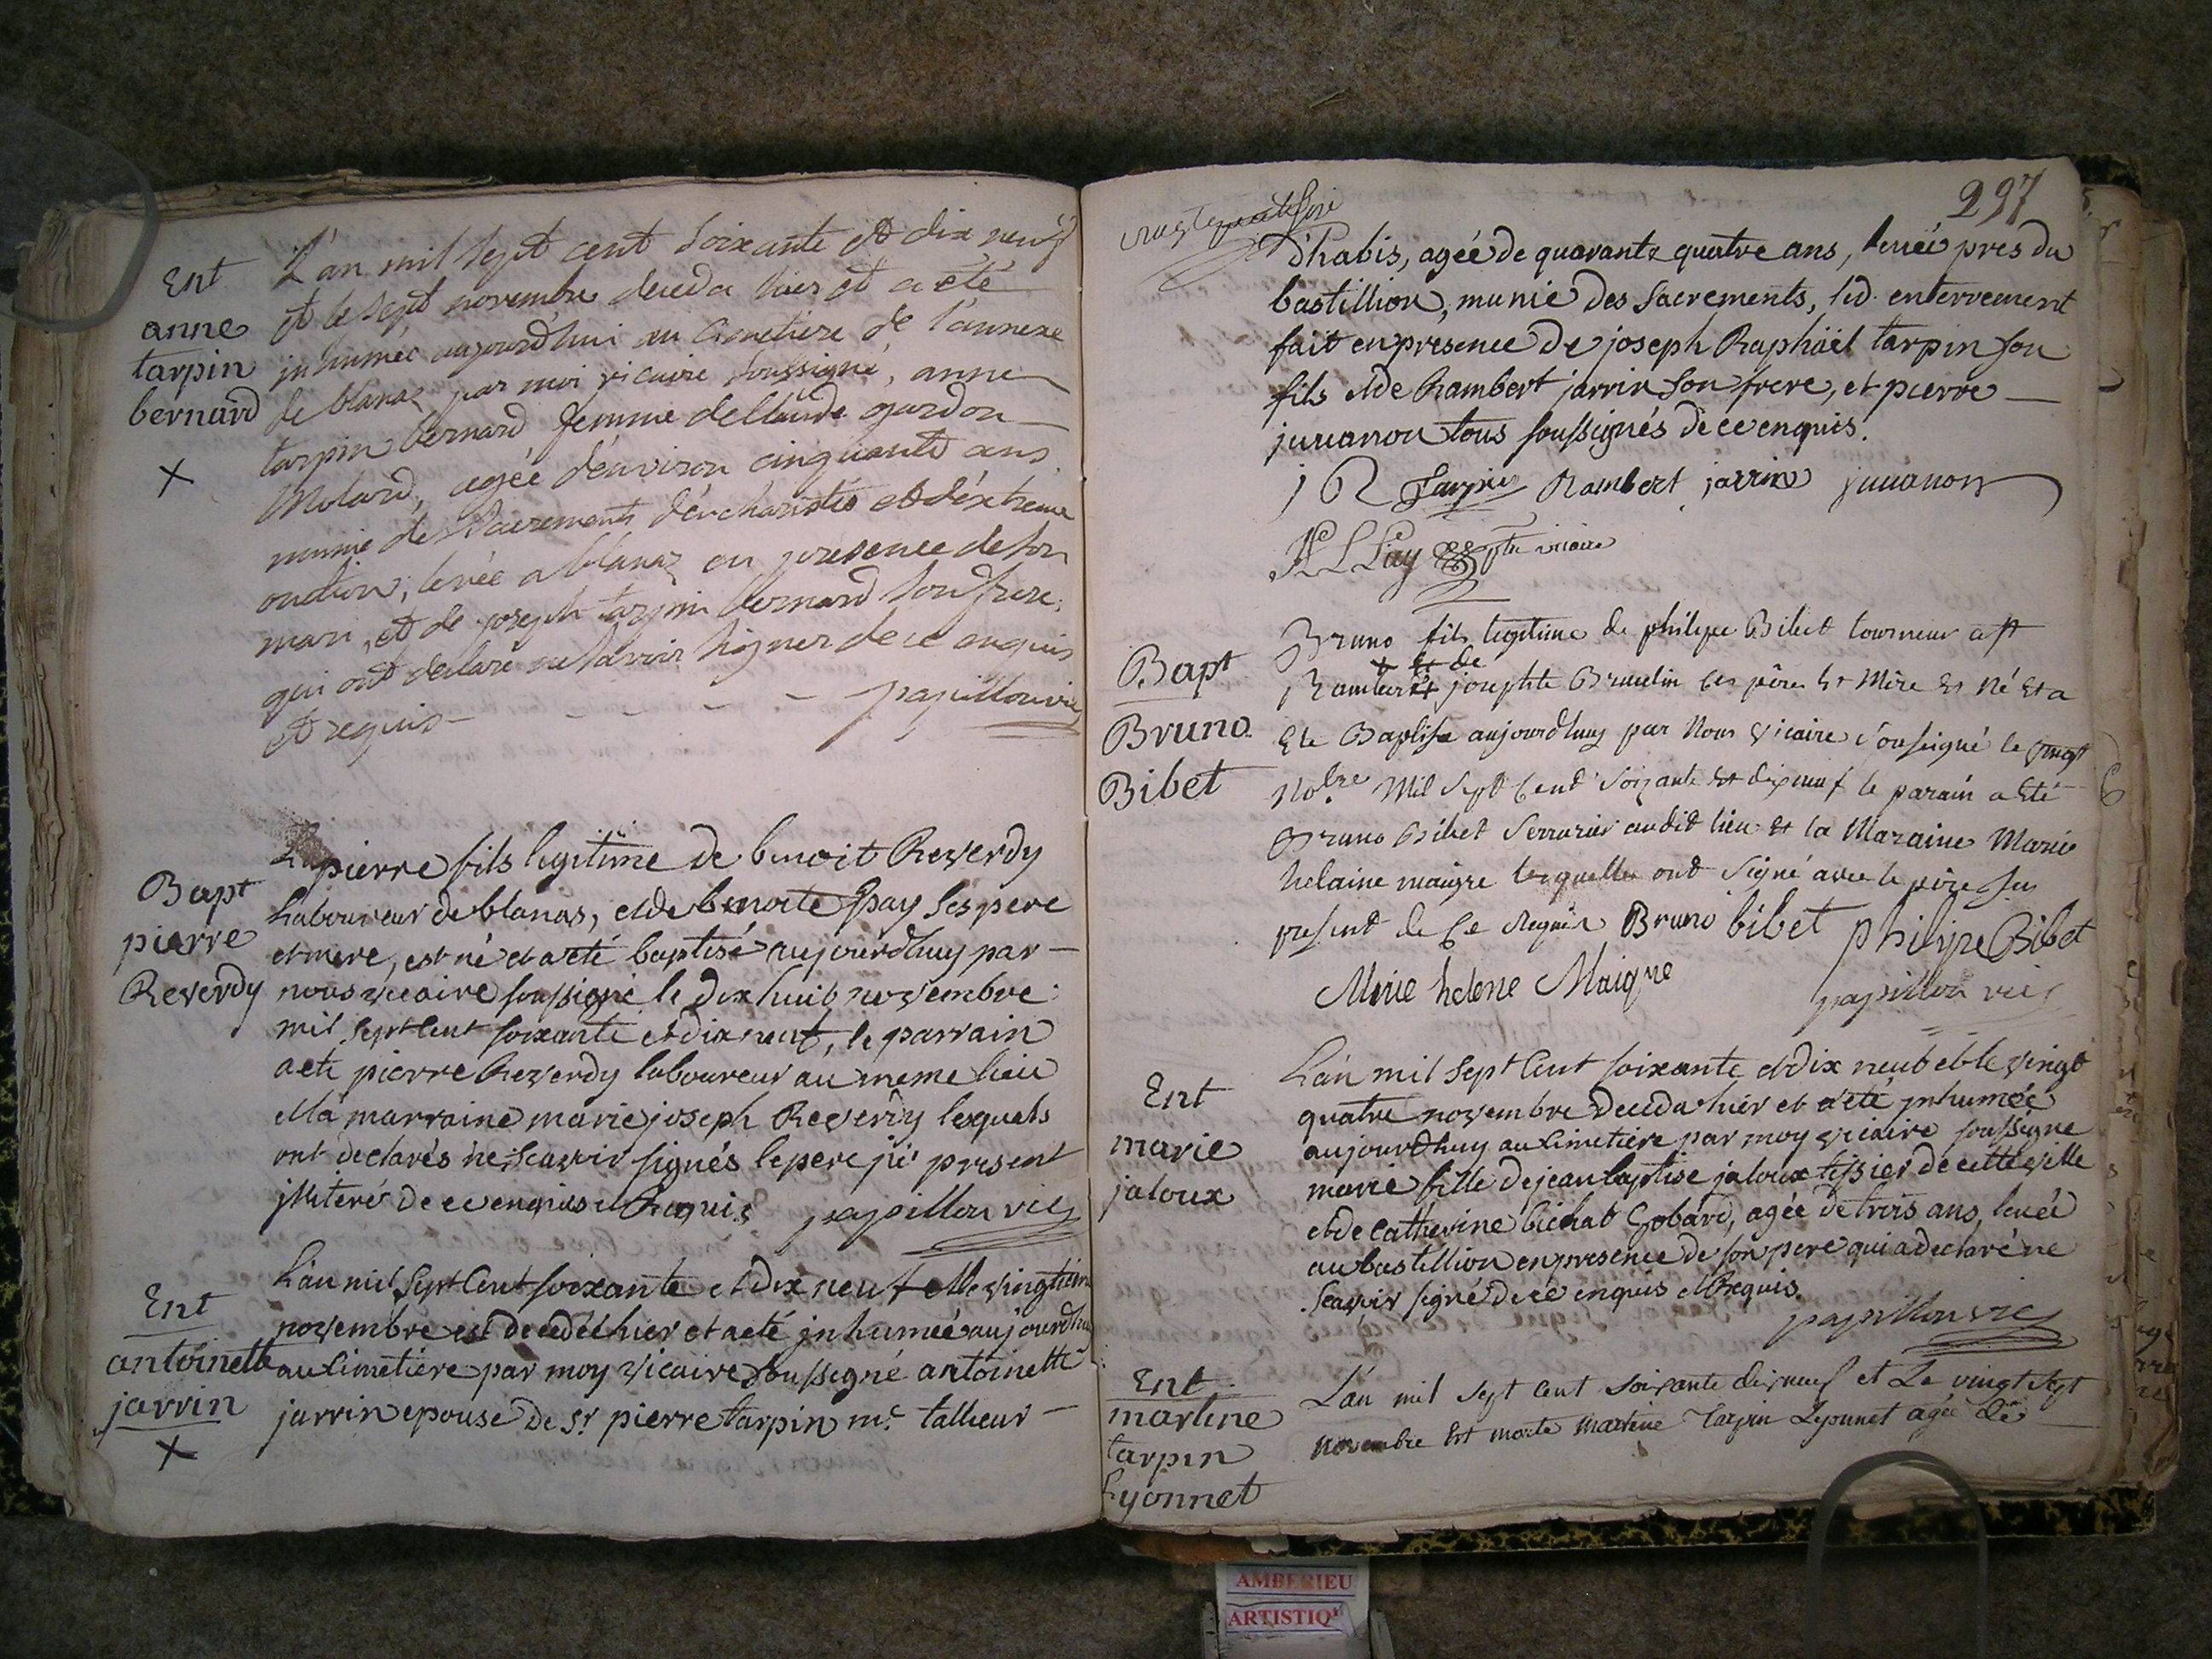 Ent
anne
tarpin
bernard
L'an mil sept cent soixante et dix neuf
et le sept novembre deceda hier et a eté
inhumée aujourd'hui au cimetiere de l'annexe
de blanaz par moi vicaire soussigné, anne
tarpin bernard femme de Claude gardon
Molard, agée d'environ cinquante ans
munie des sacrements d'eucharistie et d'extreme
onction, levée a blanaz en presence de son
mari, et de joseph tarpin bernard son frere,
qui ont declaré ne savoir signer de ce enquis
et requis - papillon vic
Bapt
pierre
Reverdy
pierre fils legitime de benoit Reverdy
laboureur de blanas, et de benoite Spay ses pere
et mere, est né et a eté baptisé aujourdhuy par
nous vicaire soussigné le dix huit novembre
mil sept Cent soixante et dix neuf, le parrain
a eté pierre Reverdy laboureur au meme lieu
et la marraine marie joseph Reverdy lesquels
ont declarés ne scavoir signés le pere ici present
illiteré de ce enquis et Requis papillon vic
Ent
antoinette
jarrin
L'an mil Sept Cent soixante et dix neuf et le vingtiem
novembre est decedéé hier et a eté inhumeé aujourdhu
au cimetiere par moy vicaire soussigné antoinette
jarrin epouse de Sr pierre tarpin me tallieur
297
D'habis, agéé de quarante quatre ans, leveé pres du
bastillion, munie des sacrements, led. enterrement
fait en presence de joseph Raphäel tarpin son
fils et de Rambert jarrin son frere, et pierre
juuanon tous soussignés de ce enquis.
J R Tarpin Rambert jarrin juuanon
ptre vicaire
Bapt
Bruno
Bibet
Bruno fils legitime de philipe Bibet tourneur a st
+ et de
Rambert + josephte Braulin ses père et Mère est Né et a
Eté Baptisé aujourdhuy par Nous vicaire soussigné le vingt
Nobre Mil Sept Cent Soixante et dixneuf le parain a eté
Bruno Bibet Serrurier audit lieu et la Maraine Marie
helaine maigre lesquelles ont signé avec le père
present de Ce Requis Bruno bibet philipe Bibet
Marie helene Maigre
papillon vic
Ent
marie
jaloux
L'an mil sept Cent soixante et dix neuf et le vingt
quatre novembre deceda hier et a eté inhumée
aujourdhuy au cimetiere par moy vicaire soussigné
marie fille de jean baptise jaloux tissier de cette ville
et de Catherine bichat Gobard, agée de trois ans, levéé
au bastillion en presence de son pere qui a declaré ne
Scavoir signé de ce enquis et Requis.
papillon vic
Ent
martine
tarpin
Lyonnet
L'an mil sept cent soixante dixneuf et Le vingt sept
novembre Est morte Martine Tarpin Lyonnet agée de
AMBERIEU
ARTISTIQ